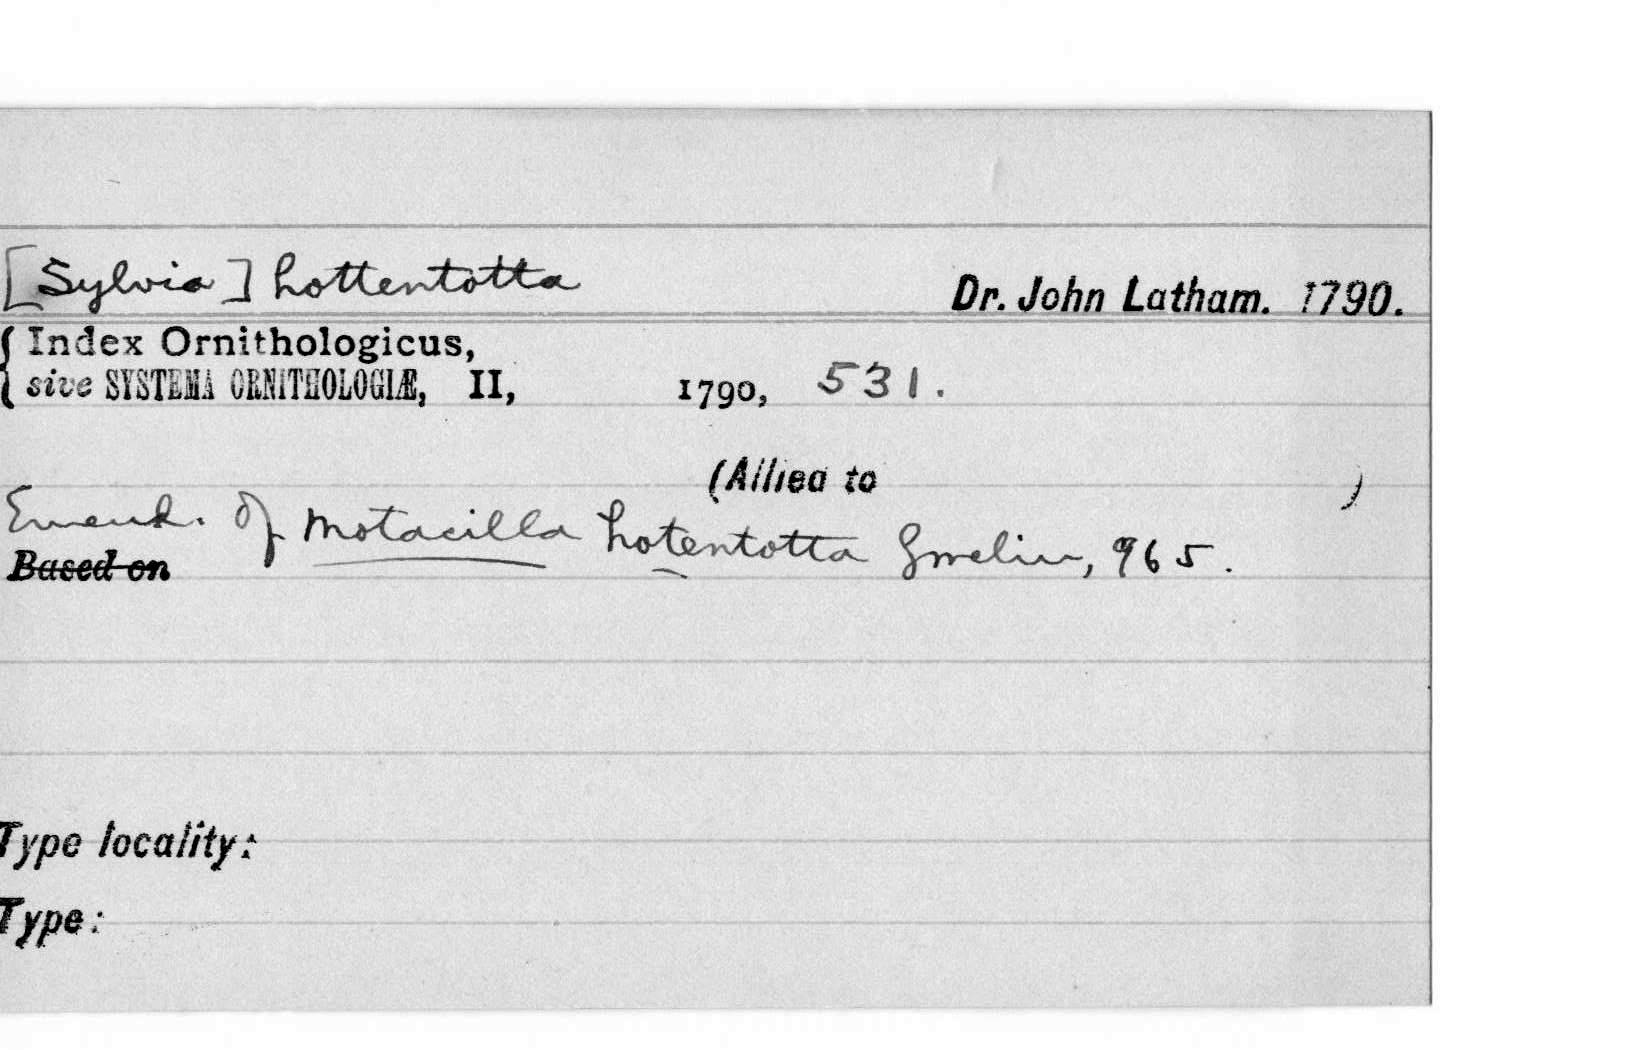 [Sylvia] hottentotta Dr. John Latham. 1790.
Index Ornithologicus,
sive SYSTEMA ORNITHOLOGIÆ, II, 1790, 531.
(Allied to )
Emend. of Motacilla hotentotta Gmelin, 965.
Based on
Type locality:
Type: